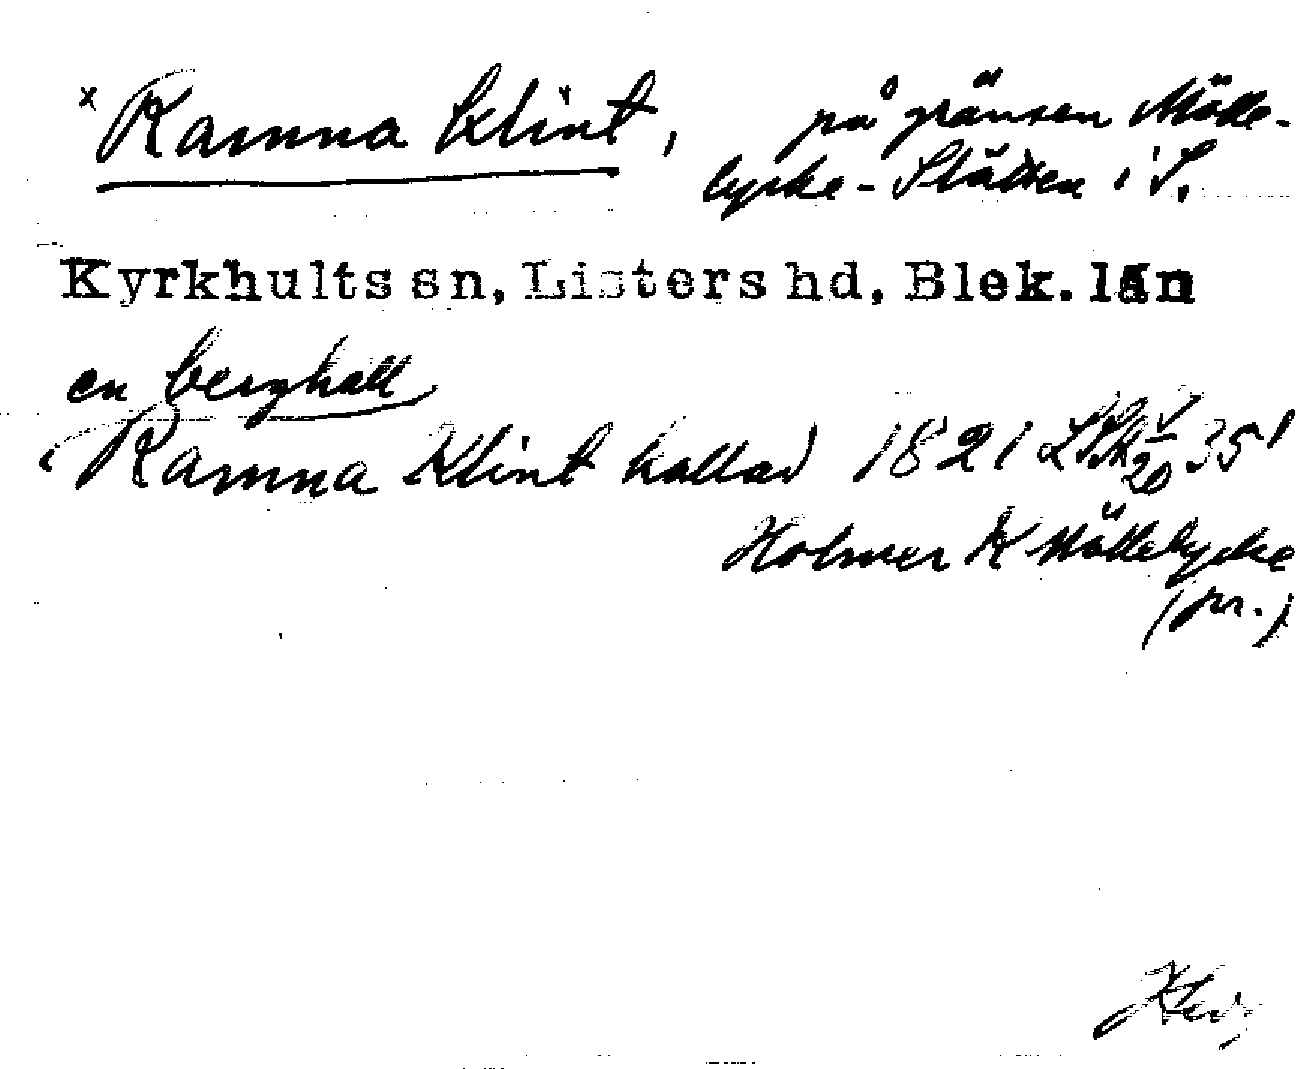 x Ramna Klint, på gränsen Mölle-
lycke - Slätten i S.
Kyrkhults sn, Listers hd, Blek. län
en berghall
Ramna Klint kallad 1821 LSk V/20 35'
Holmer K Möllelycke
(pr.)